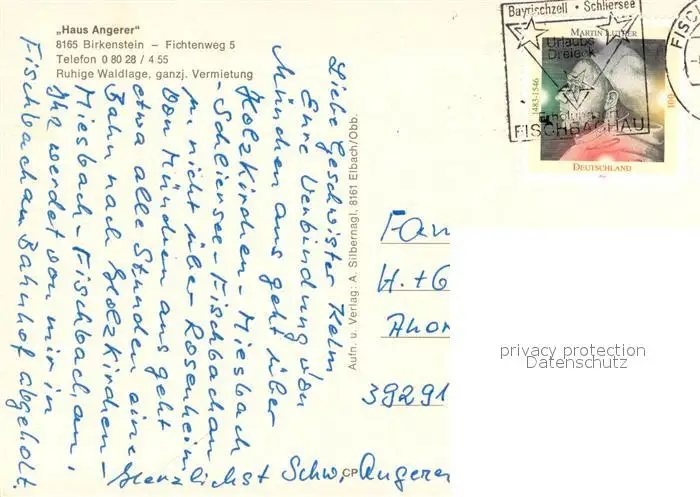 „Haus Angerer“
8165 Birkenstein – Fichtenweg 5
Telefon 0 80 28 / 4 55
Ruhige Waldlage, ganzj. Vermietung
Liebe Geschwister Kelm
Eure Verbindung von
München aus geht über
Holzkirchen - Miesbach
- Schliersee - Fischbachau
nicht über Rosenheim
Von München aus geht
etwa alle Stunden eine
Bahn nach Holzkirchen -
Miesbach - Fischbachau.
Ihr werdet von mir in
Fischbachau am Bahnhof abgeholt.
Herzlichst Schw. Angerer
Aufn. u. Verlag: A. Silbernagl, 8161 Elbach/Obb.
CP
Bayrischzell • Schliersee
Urlaubs
Dreieck
Erholung
FISCHBACHAU
FISCH
MARTIN LUTHER
1483-1546
100
DEUTSCHLAND
Fam
H. + G
Ahor
39291
privacy protection
Datenschutz